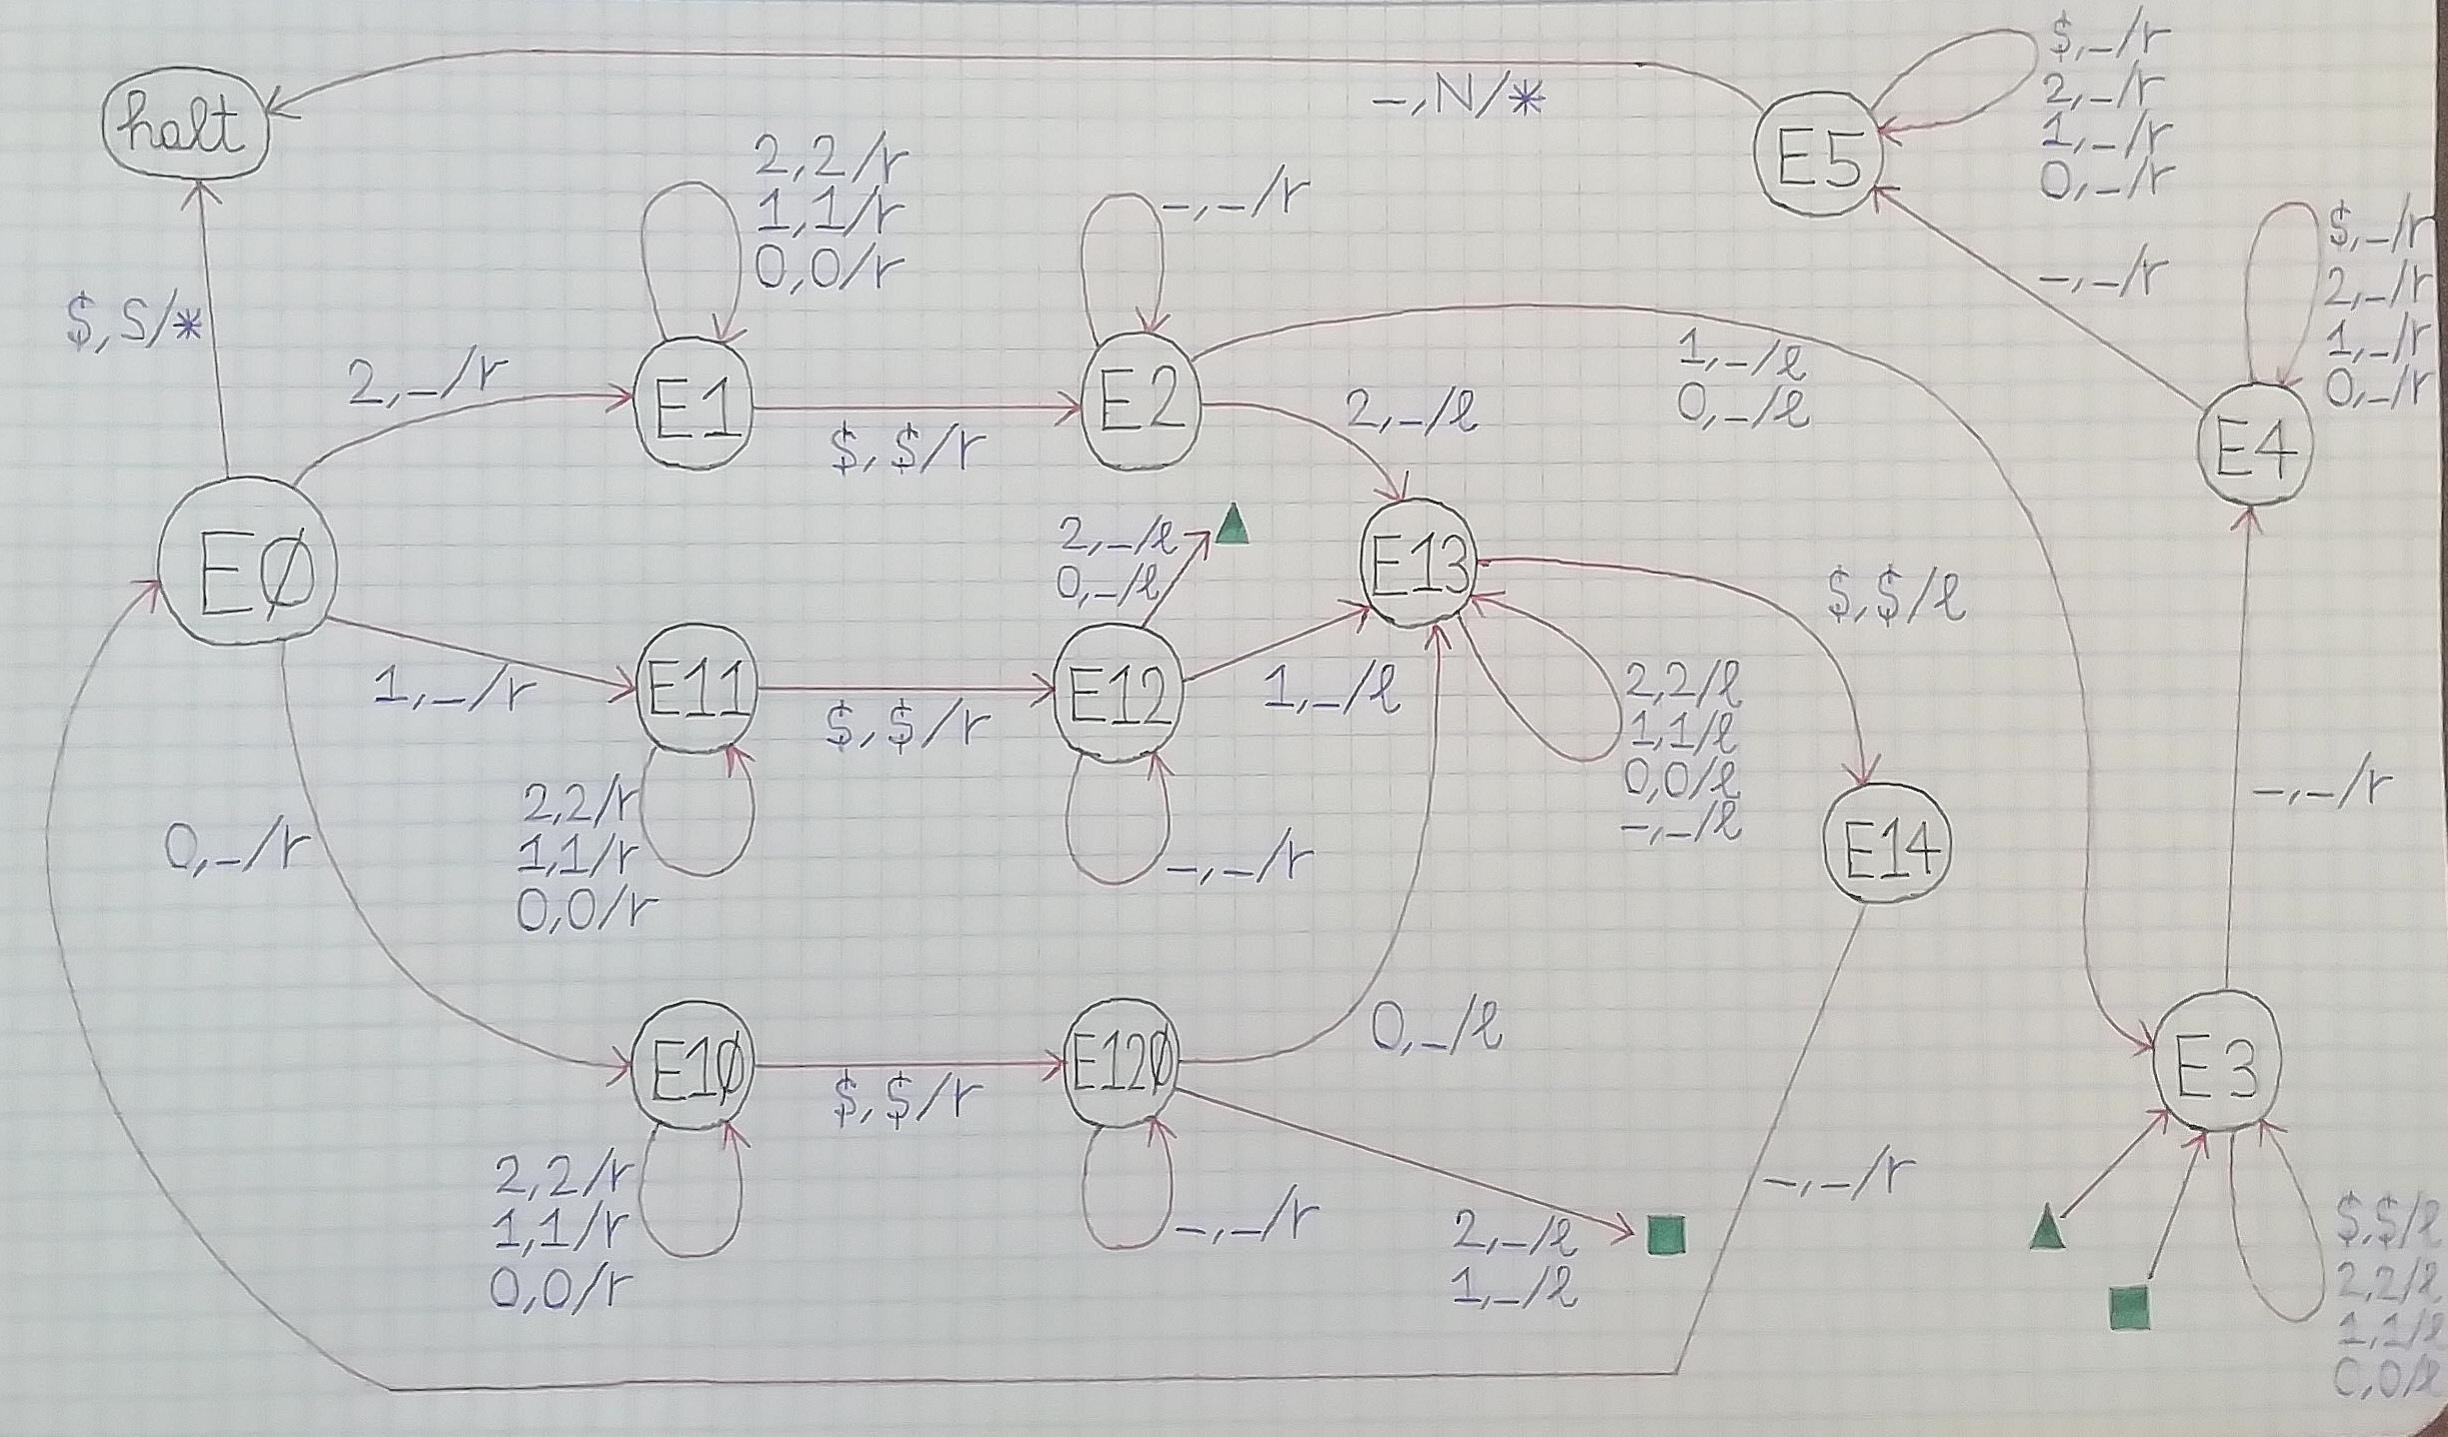 halt
-,N/*
$,_/r
2,_/r
1,_/r
0,_/r
E5
2,2/r
1,1/r
0,0/r
-,_/r
$,_/r
2,_/r
1,_/r
0,_/r
-,_/r
$,S/*
2,_/r
E1
$,$/r
E2
2,_/l
1,_/l
0,_/l
E4
2,_/l
0,_/l
E13
$,$/l
EØ
1,_/r
E11
$,$/r
E12
1,_/l
2,2/l
1,1/l
0,0/l
-,_/l
-,_/r
0,_/r
2,2/r
1,1/r
0,0/r
-,_/r
E14
E1Ø
$,$/r
E12Ø
0,_/l
E3
2,2/r
1,1/r
0,0/r
-,_/r
2,_/l
1,_/l
-,_/r
$,$/l
2,2/l
1,1/l
0,0/l